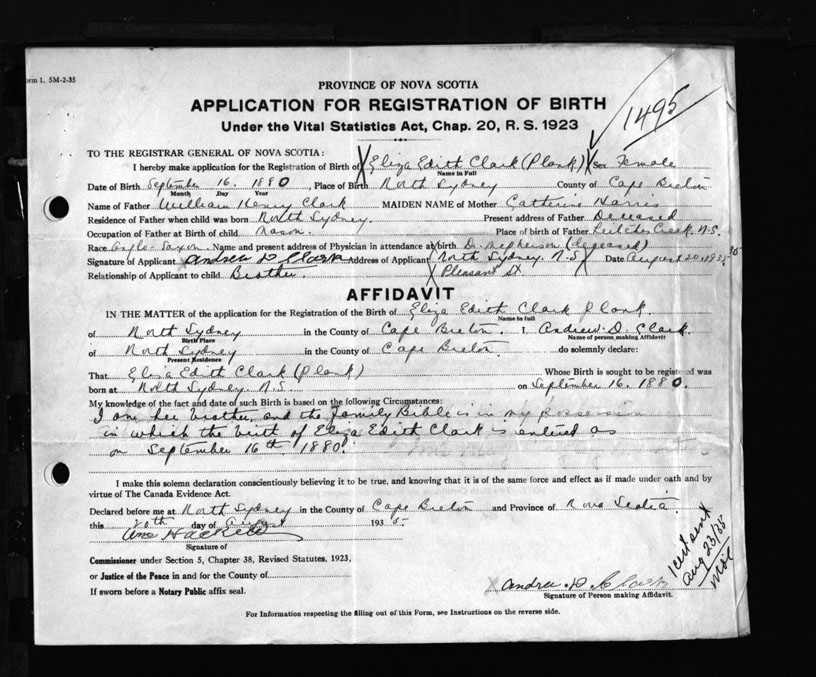 orm 1. 5M-2-35
PROVINCE OF NOVA SCOTIA
APPLICATION FOR REGISTRATION OF BIRTH
Under the Vital Statistics Act, Chap. 20, R. S. 1923
1495
TO THE REGISTRAR GENERAL OF NOVA SCOTIA:
I hereby make application for the Registration of Birth of Eliza Edith Clark (Plank) Sex Female
Name in Full
Date of Birth September 16. 1880, Place of Birth North Sydney County of Cape Breton
Month Day Year
Name of Father William Henry Clark MAIDEN NAME of Mother Catherine Harris
Residence of Father when child was born North Sydney. Present address of Father Deceased
Occupation of Father at Birth of child Mason. Place of birth of Father Leitches Creek. N.S.
Race Anglo-Saxon. Name and present address of Physician in attendance at birth Dr. (deceased)
Signature of Applicant Andrew D Clark Address of Applicant North Sydney. N.S Date August 20, 1935
Relationship of Applicant to child Brother. Pleasant St
AFFIDAVIT
IN THE MATTER of the application for the Registration of the Birth of Eliza Edith Clark Plank.
Name in full
of North Sydney in the County of Cape Breton. I, Andrew. D. Clark.
Birth Place Name of person making Affidavit
of North Sydney in the County of Cape Breton. do solemnly declare:
Present Residence
That Eliza Edith Clark (Plank) Whose Birth is sought to be registered was
born at North Sydney. N.S. on September 16. 1880.
My knowledge of the fact and date of such Birth is based on the following Circumstances:
I am her brother, and the family Bible is in my possession
in which the birth of Eliza Edith Clark is entered as
on September 16th. 1880.
I make this solemn declaration conscientiously believing it to be true, and knowing that it is of the same force and effect as if made under oath and by
virtue of The Canada Evidence Act.
Declared before me at North Sydney in the County of Cape Breton and Province of Nova Scotia.
this 20th day of August 1935.
Hackett
Signature of
Commissioner under Section 5, Chapter 38, Revised Statutes, 1923,
or Justice of the Peace in and for the County of
If sworn before a Notary Public affix seal.
Andrew D. Clark
Signature of Person making Affidavit.
cert sent
Aug 23/35
For Information respecting the filling out of this Form, see Instructions on the reverse side.